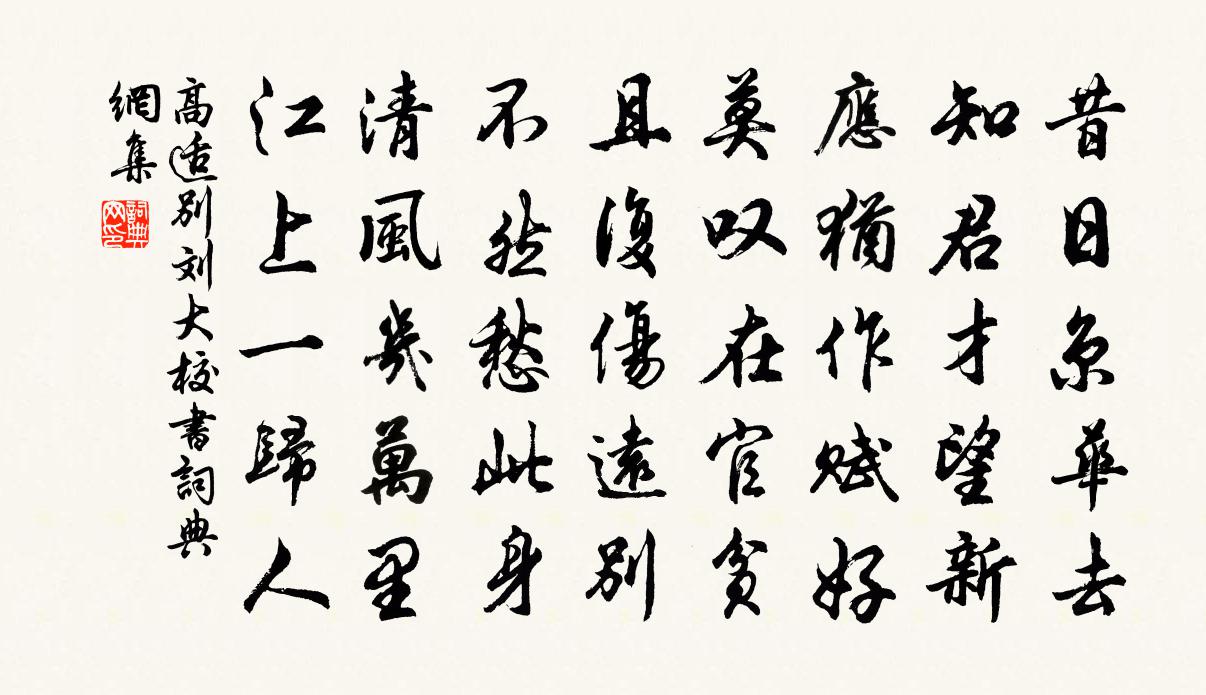 昔日京華去
知君才望新
應猶作賦好
莫叹在官貧
且復傷遠別
不然愁此身
清風幾萬里
江上一歸人
高适別刘大校書詞典
網集
詞典
网印